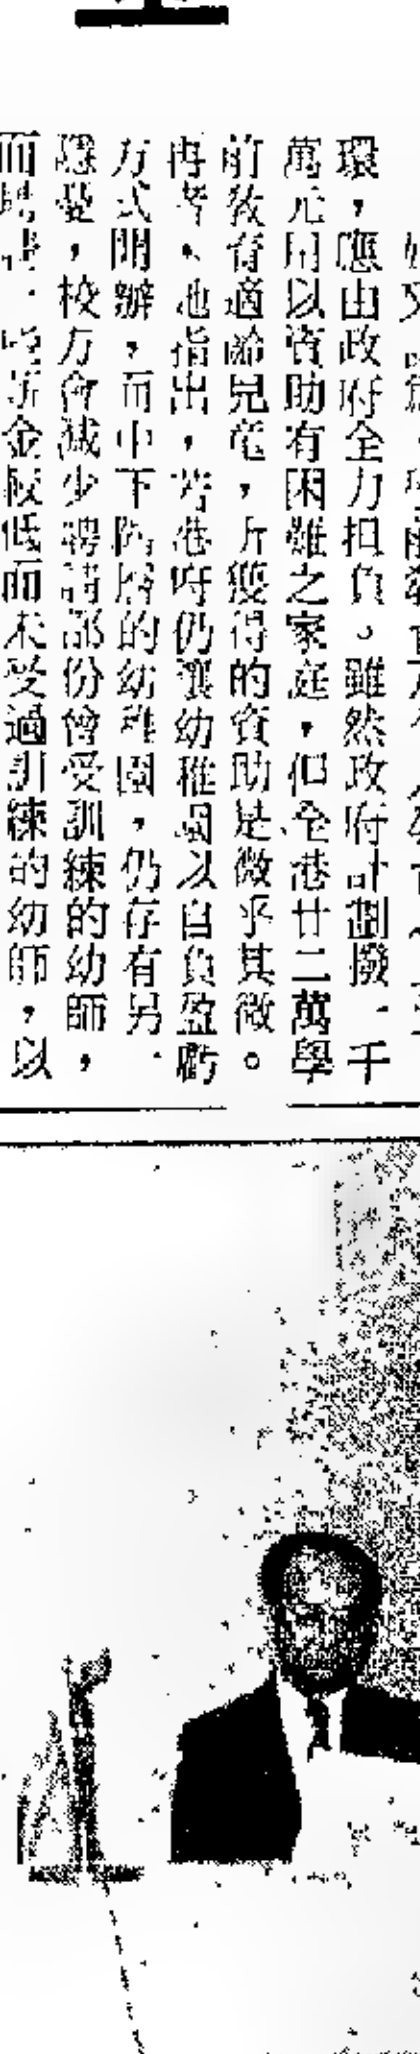 環，應由政府全力担負。雖然政府計劃撥一千
萬元用以資助有困難之家庭，但全港廿二萬學
前敎育適齡兒童，所獲得的資助是微乎其微。
再者、他指出，若港府仍讓幼稚園以自負盈虧
方式開辦，而中下階層的幼稚園，仍存有另一
隱憂，校方會減少聘請部份曾受訓練的幼師，
而聘請一些薪金較低而未受過訓練的幼師，以